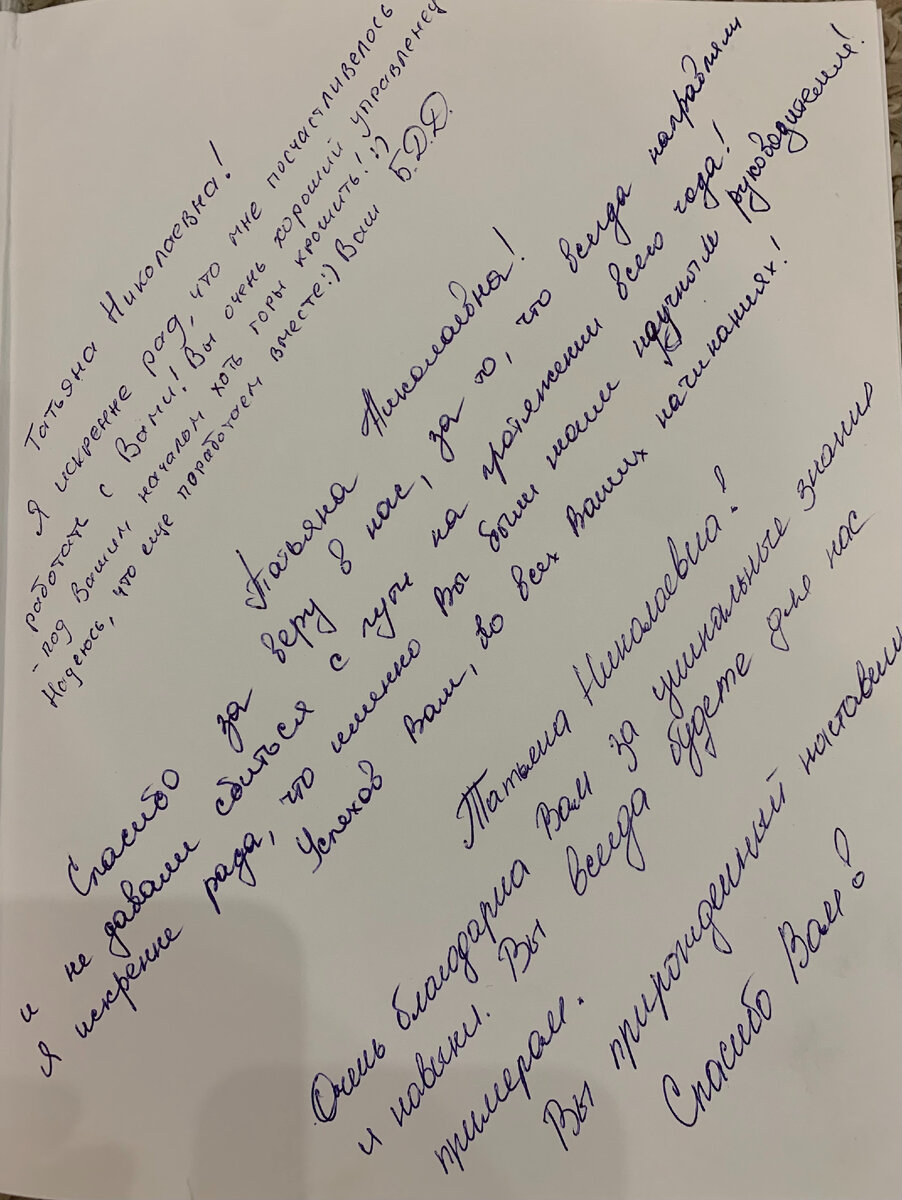 Татьяна Николаевна!
Я искренне рад, что мне посчастливелось
работать с Вами! Вы очень хороший управленец
- под Вашим началом хоть горы крошить! :)
Надеюсь, что еще поработаем вместе:) Ваш Б.Д.Д.
Татьяна Николаевна!
Спасибо за веру в нас, за то, что всегда направляли
и не давали сбиться с пути на протяжении всего года!
Я искренне рада, что именно Вы были моим научным руководителем!
Успехов Вам, во всех Ваших начинаниях!
Татьяна Николаевна!
Очень благодарна Вам за уникальные знания
и навыки. Вы всегда будете для нас
примером.
Вы прирожденный наставник
Спасибо Вам!